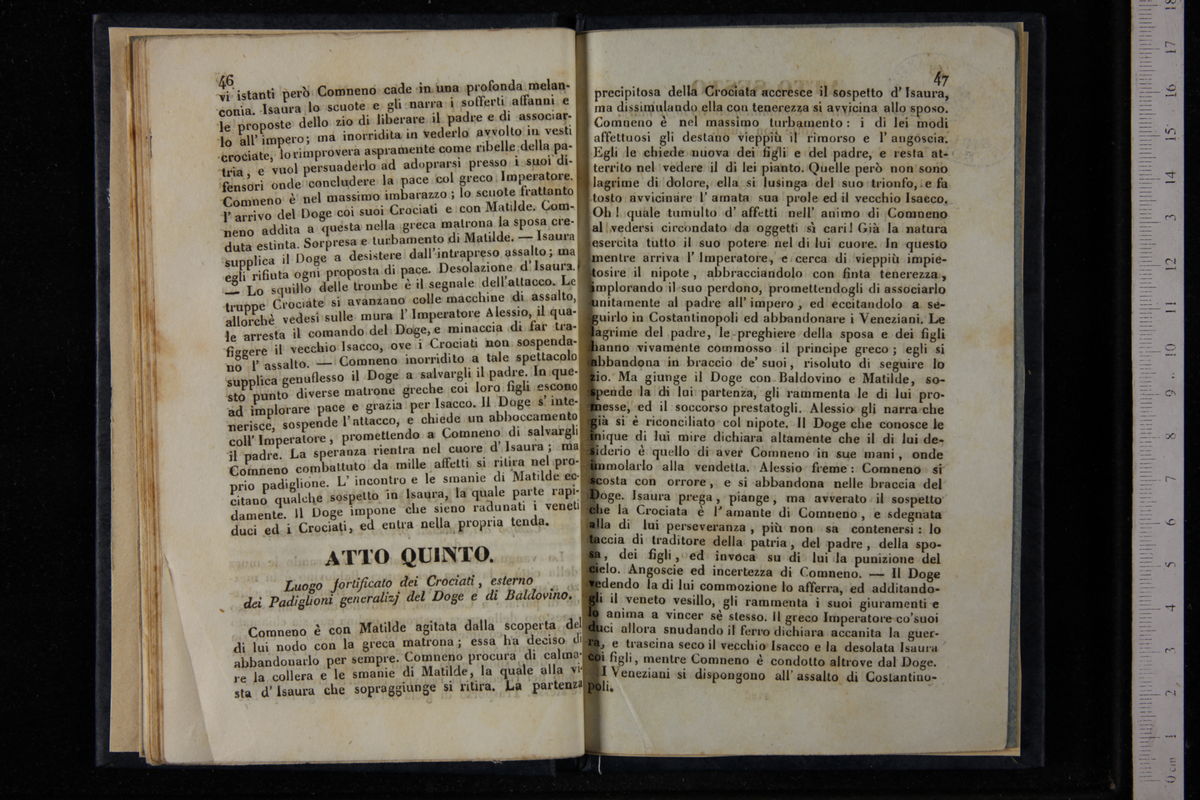 46
vi istanti però Comneno cade in una profonda melan-
conia. Isaura lo scuote e gli narra i sofferti affanni e
le proposte dello zio di liberare il padre e di associar-
lo all' impero; ma inorridita in vederlo avvolto in vesti
crociate, lo rimprovera aspramente come ribelle della pa-
tria, e vuol persuaderlo ad adoprarsi presso i suoi di-
fensori onde concludere la pace col greco Imperatore.
Comneno è nel massimo imbarazzo; lo scuote frattanto
l' arrivo del Doge coi suoi Crociati e con Matilde. Com-
neno addita a questa nella greca matrona la sposa cre-
duta estinta. Sorpresa e turbamento di Matilde. — Isaura
supplica il Doge a desistere dall' intrapreso assalto; ma
egli rifiuta ogni proposta di pace. Desolazione d' Isaura.
— Lo squillo delle trombe è il segnale dell' attacco. Le
truppe Crociate si avanzano colle macchine di assalto,
allorchè vedesi sulle mura l' Imperatore Alessio, il qua-
le arresta il comando del Doge, e minaccia di far tra-
figgere il vecchio Isacco, ove i Crociati non sospenda-
no l' assalto. — Comneno inorridito a tale spettacolo
supplica genuflesso il Doge a salvargli il padre. In que-
sto punto diverse matrone greche coi loro figli escono
ad implorare pace e grazia per Isacco. Il Doge s' inte-
nerisce, sospende l' attacco, e chiede un abboccamento
coll' Imperatore, promettendo a Comneno di salvargli
il padre. La speranza rientra nel cuore d' Isaura; ma
Comneno combattuto da mille affetti si ritira nel pro-
prio padiglione. L' incontro e le smanie di Matilde ec-
citano qualche sospetto in Isaura, la quale parte rapi-
damente. Il Doge impone che sieno radunati i veneti
duci ed i Crociati, ed entra nella propria tenda.
ATTO QUINTO.
Luogo fortificato dei Crociati, esterno
dei Padiglioni generalizj del Doge e di Baldovino.
Comneno è con Matilde agitata dalla scoperta del
di lui nodo con la greca matrona; essa ha deciso di
abbandonarlo per sempre. Comneno procura di calma-
re la collera e le smanie di Matilde, la quale alla vi-
sta d' Isaura che sopraggiunge si ritira. La partenza
47
precipitosa della Crociata accresce il sospetto d' Isaura,
ma dissimulando ella con tenerezza si avvicina allo sposo.
Comneno è nel massimo turbamento: i di lei modi
affettuosi gli destano vieppiù il rimorso e l' angoscia.
Egli le chiede nuova dei figli e del padre, e resta at-
territo nel vedere il di lei pianto. Quelle però non sono
lagrime di dolore, ella si lusinga del suo trionfo, e fa
tosto avvicinare l' amata sua prole ed il vecchio Isacco.
Oh! quale tumulto d' affetti nell' animo di Comneno
al vedersi circondato da oggetti sì cari! Già la natura
esercita tutto il suo potere nel di lui cuore. In questo
mentre arriva l' Imperatore, e cerca di vieppiù impie-
tosire il nipote, abbracciandolo con finta tenerezza,
implorando il suo perdono, promettendogli di associarlo
unitamente al padre all' impero, ed eccitandolo a se-
guirlo in Costantinopoli ed abbandonare i Veneziani. Le
lagrime del padre, le preghiere della sposa e dei figli
hanno vivamente commosso il principe greco; egli si
abbandona in braccio de' suoi, risoluto di seguire lo
zio. Ma giunge il Doge con Baldovino e Matilde, so-
spende la di lui partenza, gli rammenta le di lui pro-
messe, ed il soccorso prestatogli. Alessio gli narra che
già si è riconciliato col nipote. Il Doge che conosce le
inique di lui mire dichiara altamente che il di lui de-
siderio è quello di aver Comneno in sue mani, onde
immolarlo alla vendetta. Alessio freme: Comneno si
scosta con orrore, e si abbandona nelle braccia del
Doge. Isaura prega, piange, ma avverato il sospetto
che la Crociata è l' amante di Comneno, e sdegnata
alla di lui perseveranza, più non sa contenersi: lo
taccia di traditore della patria, del padre, della spo-
sa, dei figli, ed invoca su di lui la punizione del
cielo. Angoscie ed incertezza di Comneno. — Il Doge
vedendo la di lui commozione lo afferra, ed additando-
gli il veneto vesillo, gli rammenta i suoi giuramenti e
lo anima a vincer sè stesso. Il greco Imperatore co' suoi
duci allora snudando il ferro dichiara accanita la guer-
ra, e trascina seco il vecchio Isacco e la desolata Isaura
coi figli, mentre Comneno è condotto altrove dal Doge.
I Veneziani si dispongono all' assalto di Costantino-
poli.
0 cm 1 2 3 4 5 6 7 8 9 10 11 12 13 14 15 16 17 18